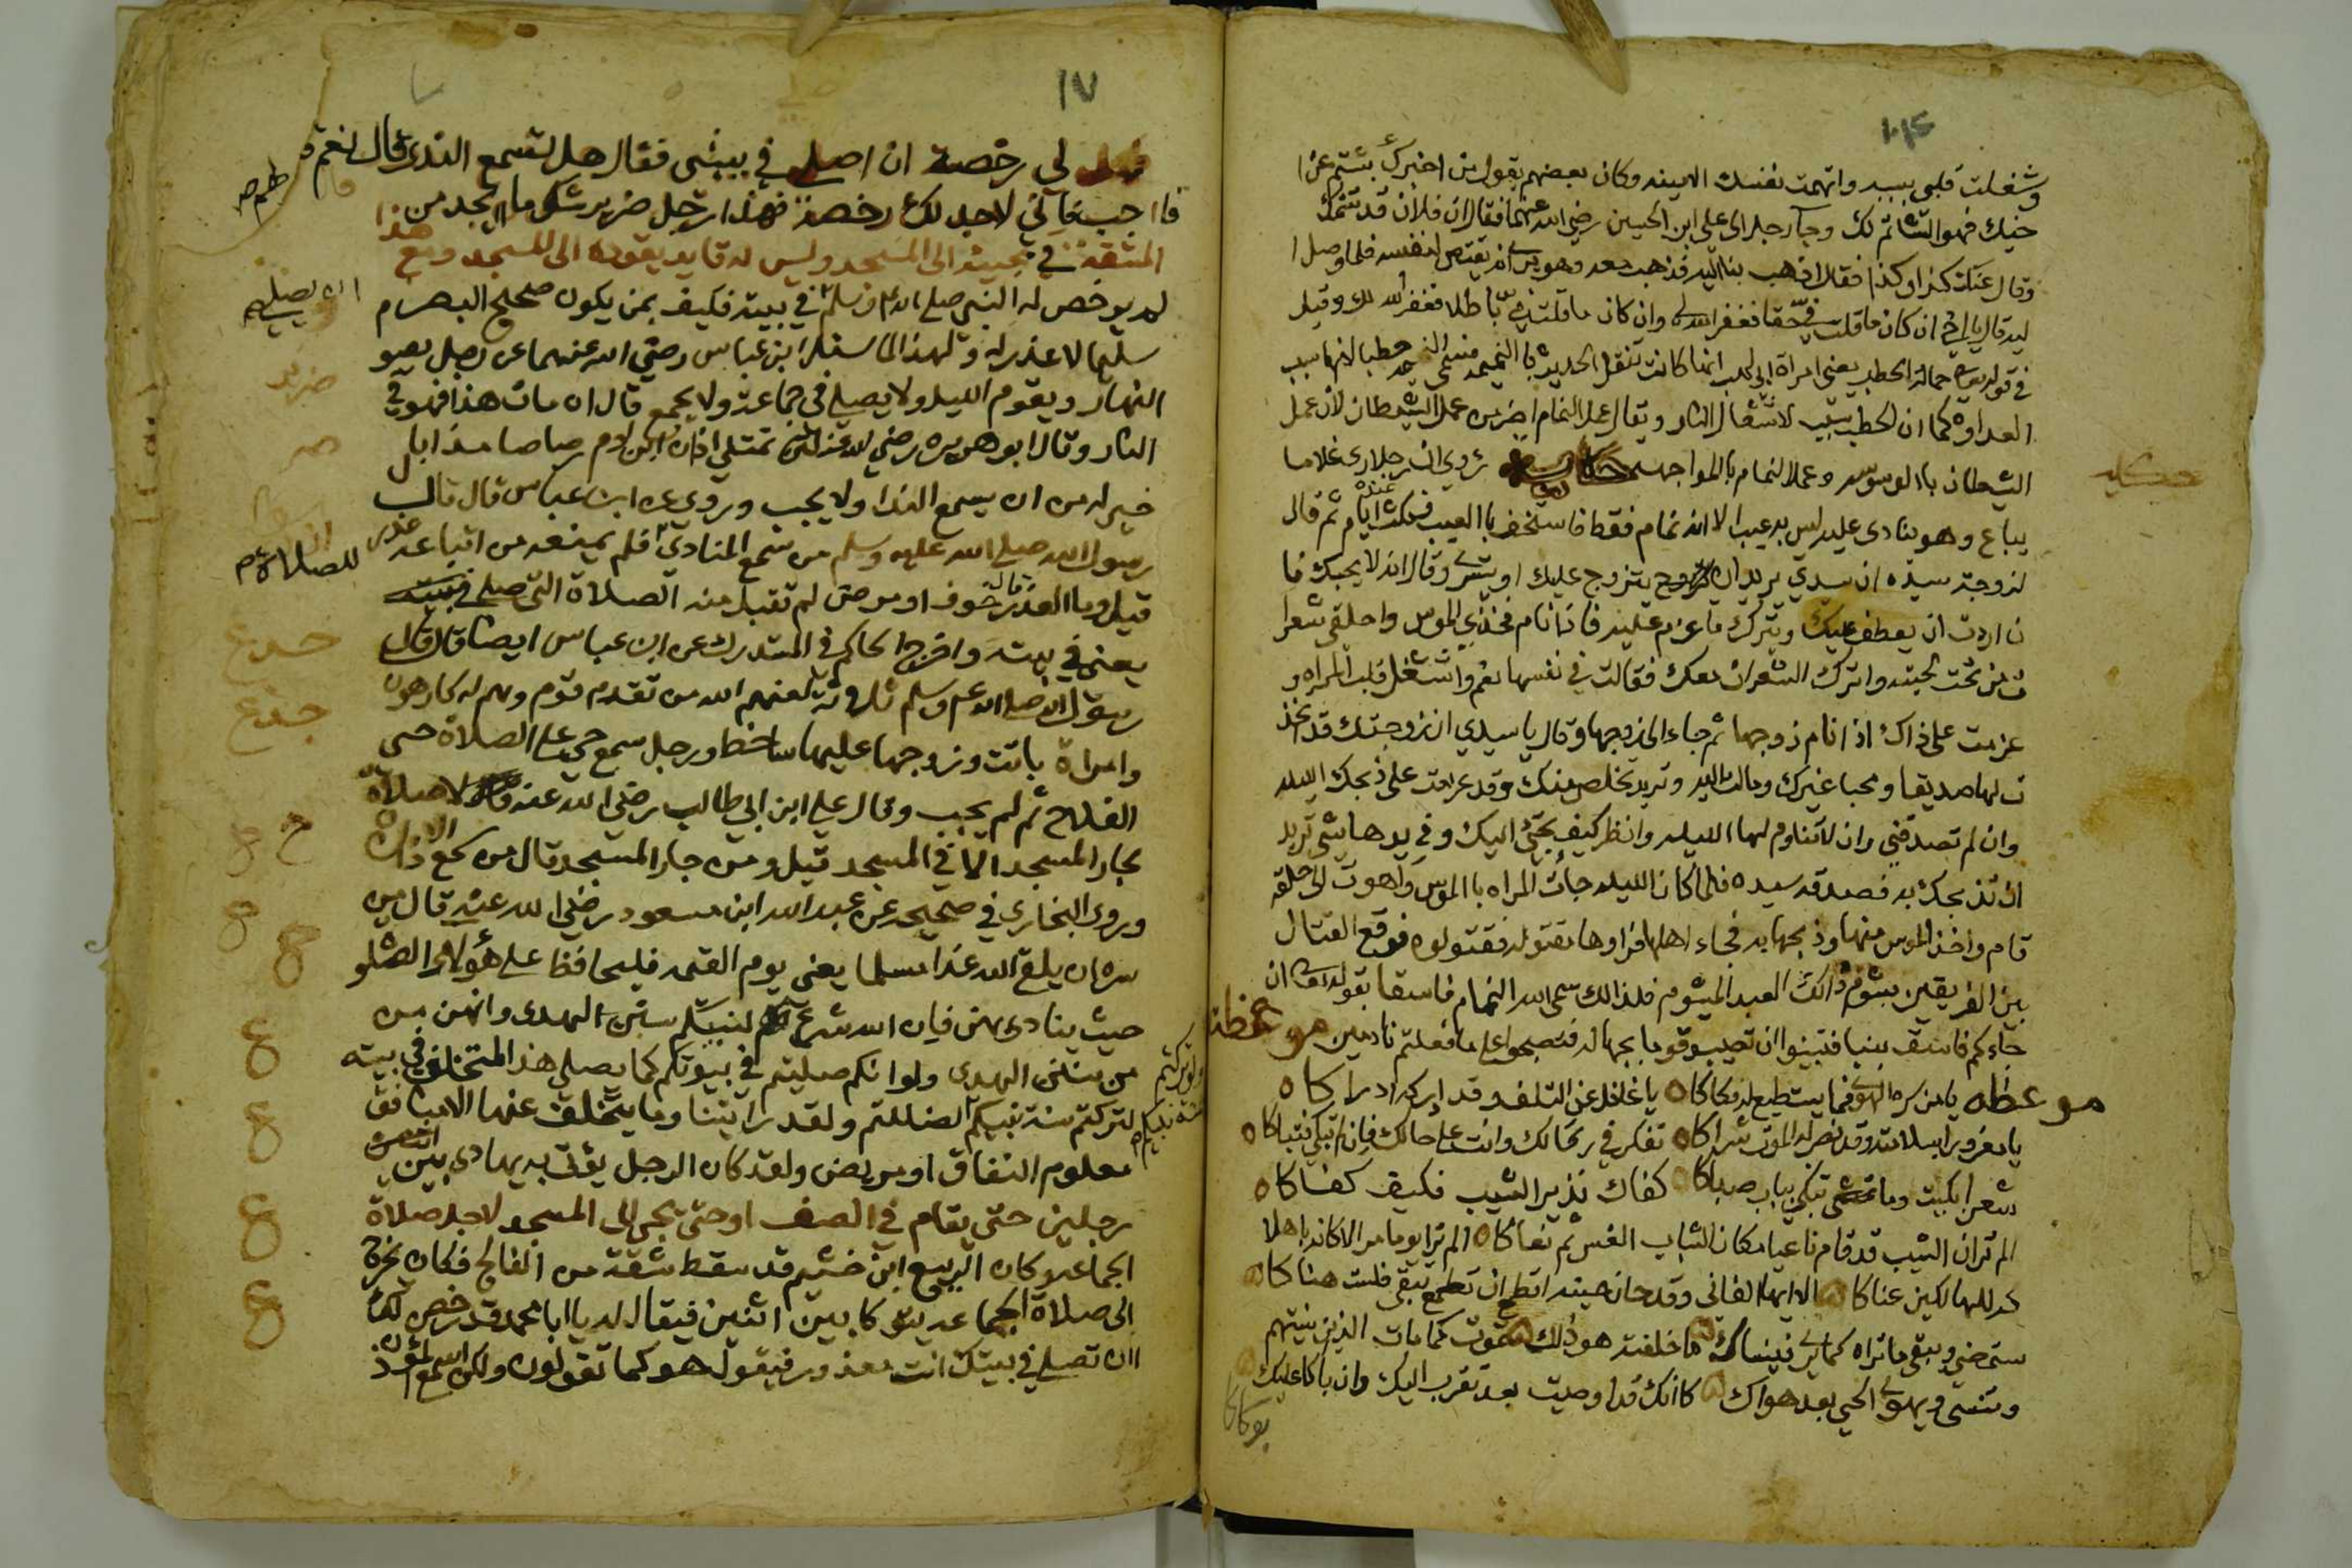 وشغلت قلبي بسببه واتهمت نفسك الامينه وكان بعضهم يقول من اخبرك بشتم عن ا
خيك فهو الشاتم لك وجآء رجل الى علي ابن الحسين رضي الله عنهما فقال ان فلان قد شتمك
وقال عنك كذا وكذا فقال اذهب بنا اليه فذهب معه وهو يرى انه يقتص لنفسه فلما وصل ا
ليه قال يا اخي ان كان ما قلت في حقا فغفر الله لي وان كان ما قلت في باطلا فغفر الله لك وقيل
في قوله تعالى حمالة الحطب يعني امراة ابي لهب انها كانت تنقل الحديث با النميمه فسمى النميمه حطبا لانها سبب
العداوه كما ان الحطب سبب لاشتعال النار ويقال عمل النمام اضر من عمل الشيطان لان عمل
الشيطان با الوسوسه وعمل النمام بالمواجهه حكايه روي ان رجلا راى غلاما
يباع وهو ينادى عليه ليس به عيب الا انه نمام فقط فاستخف با العيب فمكث عنده ايام ثم قال
لزوجة سيده ان سيدي يريد ان يتزوج عليك او يتسرى وقال انه لا يحبك فا
ن اردت ان يعطف عليك ويترك ما عزم عليه فاذا نام فخذي الموس واحلقي شعرا
ت من تحت لحيته واترك الشعرات معك فقالت في نفسها نعم واشتغل قلب المراه و
عزمت على ذاك اذا نام زوجها ثم جاء الى زوجها وقال يا سيدي ان زوجتك قد اتخذ
ت لها صديقا ومحبا غيرك ومالت اليه وتريد تخلص منك وقد عزمت على ذبحك الليله
وان لم تصدقني وان لا فتناوم لها الليله وانظر كيف تجئ اليك وفي يدها شي تريد
ان تذبحك به فصدقه سيده فلما كان الليله جأت المراه با الموس واهوت الى حلقه
قام واخذ الموس منها وذبحها به فجاء اهلها فراوها مقتوله فقتلوه فوقع القتال
بين الفريقين بشوم ذالك العبد الميشوم فلذالك سمى الله النمام فاسقا بقوله تعالى ان
جاءكم فاسق بنبا فتبينوا ان تصيبو قوما بجهاله فتصبحوا على ما فعلتم نادمين موعظه
موعظه يا من كره الهوى فما يستطيع له فكاكا يا غافل عن التلف وقد ادركه ادراكا
يا مغرورا بسلامته وقد نصب له الموت شراكا تفكر في رحالك وانت على حالك فان لم تبكي فتباكا
شعر ابكيت وما تبكي بباب صباكا كفاك نذير الشيب فكيف كفاكا
الم تر ان الشيب قد قام ناعيا مكان الشباب الغض ثم نعاكا الم تر يوما مر الا كانه باهلا
كه للهالكين عناكا الا ايها الفاني وقد حان حينه اتطمع ان تبقى فلست هناكا
ستمضي ويبقى ما تراه كما ترى فينساك ما خلفته هو ذلك تموت كما مات الذين نسيتهم
وتنسى ويهوى الحي بعد هواك كانك قد اوصيت بعد تقرب اليك وان باكا عليك
بوكاكا
حكايه
١٧
فهل لي رخصة ان اصلي في بيتي فقال هل تسمع الندى قال نعم
فا اجب فاني لا اجد لك رخصة فهذا رجل ضرير شكى ما يجد من
المشقة في مجيئه الى المسجد وليس له قايد يقوده الى المسجد ومع هذا
لم يرخص له النبي صلى الله عليه وسلم في بيته فكيف بمن يكون صحيح البصر
سليما لا عذر له ولهذا لما سئل ابن عباس رضي الله عنهما عن رجل يصو
النهار ويقوم الليل ولا يصلي في جماعة ولا يجمع قال ان مات هذا فهو في
النار وقال ابو هريره رضي الله عنه لئن تمتلي اذان ابن ادم رصاصا مذابا
خير له من ان يسمع الندا ولا يجب وروي عن ابن عباس قال قال
رسول الله صلى الله عليه وسلم من سمع المنادي فلم يمنعه من اتباعه عذر
قيل وما العذر قال خوف او مرض لم تقبل منه الصلاة التي صلى في بيته
يعني في بيته واخرج الحاكم في المستدرك عن ابن عباس ايضا قال قال
رسول الله صلى الله عليه وسلم ثلاثة لعنهم الله من تقدم قوم وهم له كارهون
وامراة باتت وزوجها عليها ساخط ورجل سمع حي على الصلاة حي
الفلاح ثم لم يجب وقال علي ابن ابي طالب رضي الله عنه لا صلاة
لجار المسجد الا في المسجد قيل ومن جار المسجد قال من سمع الاذان
وروى البخاري في صحيحه عن عبد الله ابن مسعود رضي الله عنه قال من
سره ان يلق الله غدا مسلما يعني يوم القيمه فليحافظ على هؤلاء الصلو
حيث ينادى بهن فان الله شرع لنبيكم سنن الهدى وانهن من
من سنن الهدى ولوا نكم صليتم في بيوتكم كما يصلي هذا المتخلف في بيته
لتركتم سنة نبيكم لضللتم ولقد رايتنا وما يتخلف عنها الا منافق
معلوم النفاق او مريض ولقد كان الرجل يؤتى به يهادى بين
رجلين حتى يقام في الصف او حتى يجي الى المسجد لاجل صلاة
الجماعه وكان الربيع ابن خثيم قد سقط شقه من الفالج فكان يخرج
الى صلاة الجماعه يتوكا بين اثنين فيقال له يا ابا محمد قد رخص لك
ان تصلي في بيتك انت معذور فيقول هو كما تقولون ولكن اسمع المؤذ
للصلاة
ضرير
ولو تركتم
سنة نبيكم